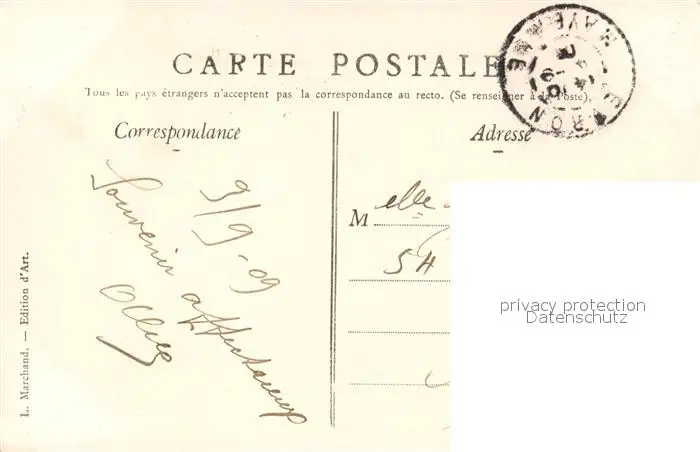 CARTE POSTALE
Tous les pays étrangers n'acceptent pas la correspondance au recto. (Se renseigner à la Poste).
Correspondance
Adresse
9/9-09
Souvenir affectueux
M elle
54
L. Marchand. — Edition d'Art.
MAYENNE
privacy protection
Datenschutz